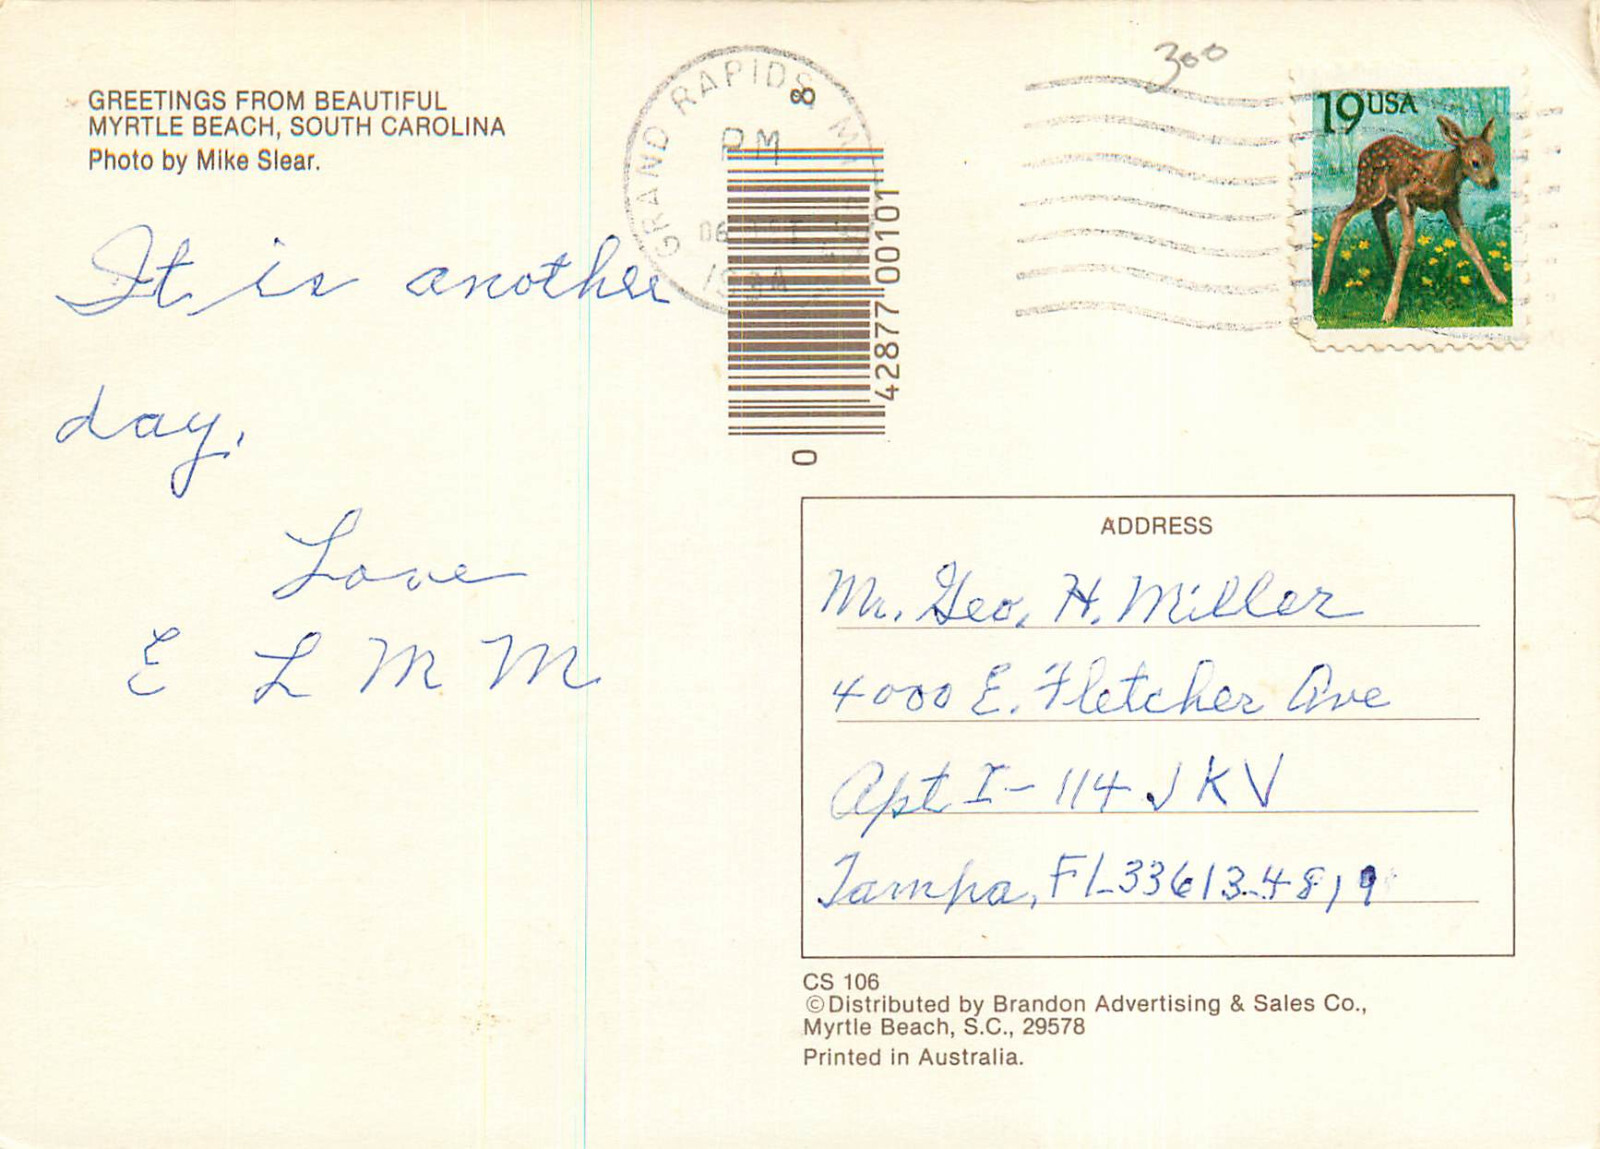 GREETINGS FROM BEAUTIFUL
MYRTLE BEACH, SOUTH CAROLINA
Photo by Mike Slear.
It is another
day.
Love
E L M M
GRAND RAPIDS MI
PM
06
1994
8
42877 00101
0
300
19 USA
ADDRESS
Mr. Geo. H. Miller
4000 E. Fletcher Ave
Apt I-114 JKV
Tampa, FL 33613-4819
CS 106
©Distributed by Brandon Advertising & Sales Co.,
Myrtle Beach, S.C., 29578
Printed in Australia.